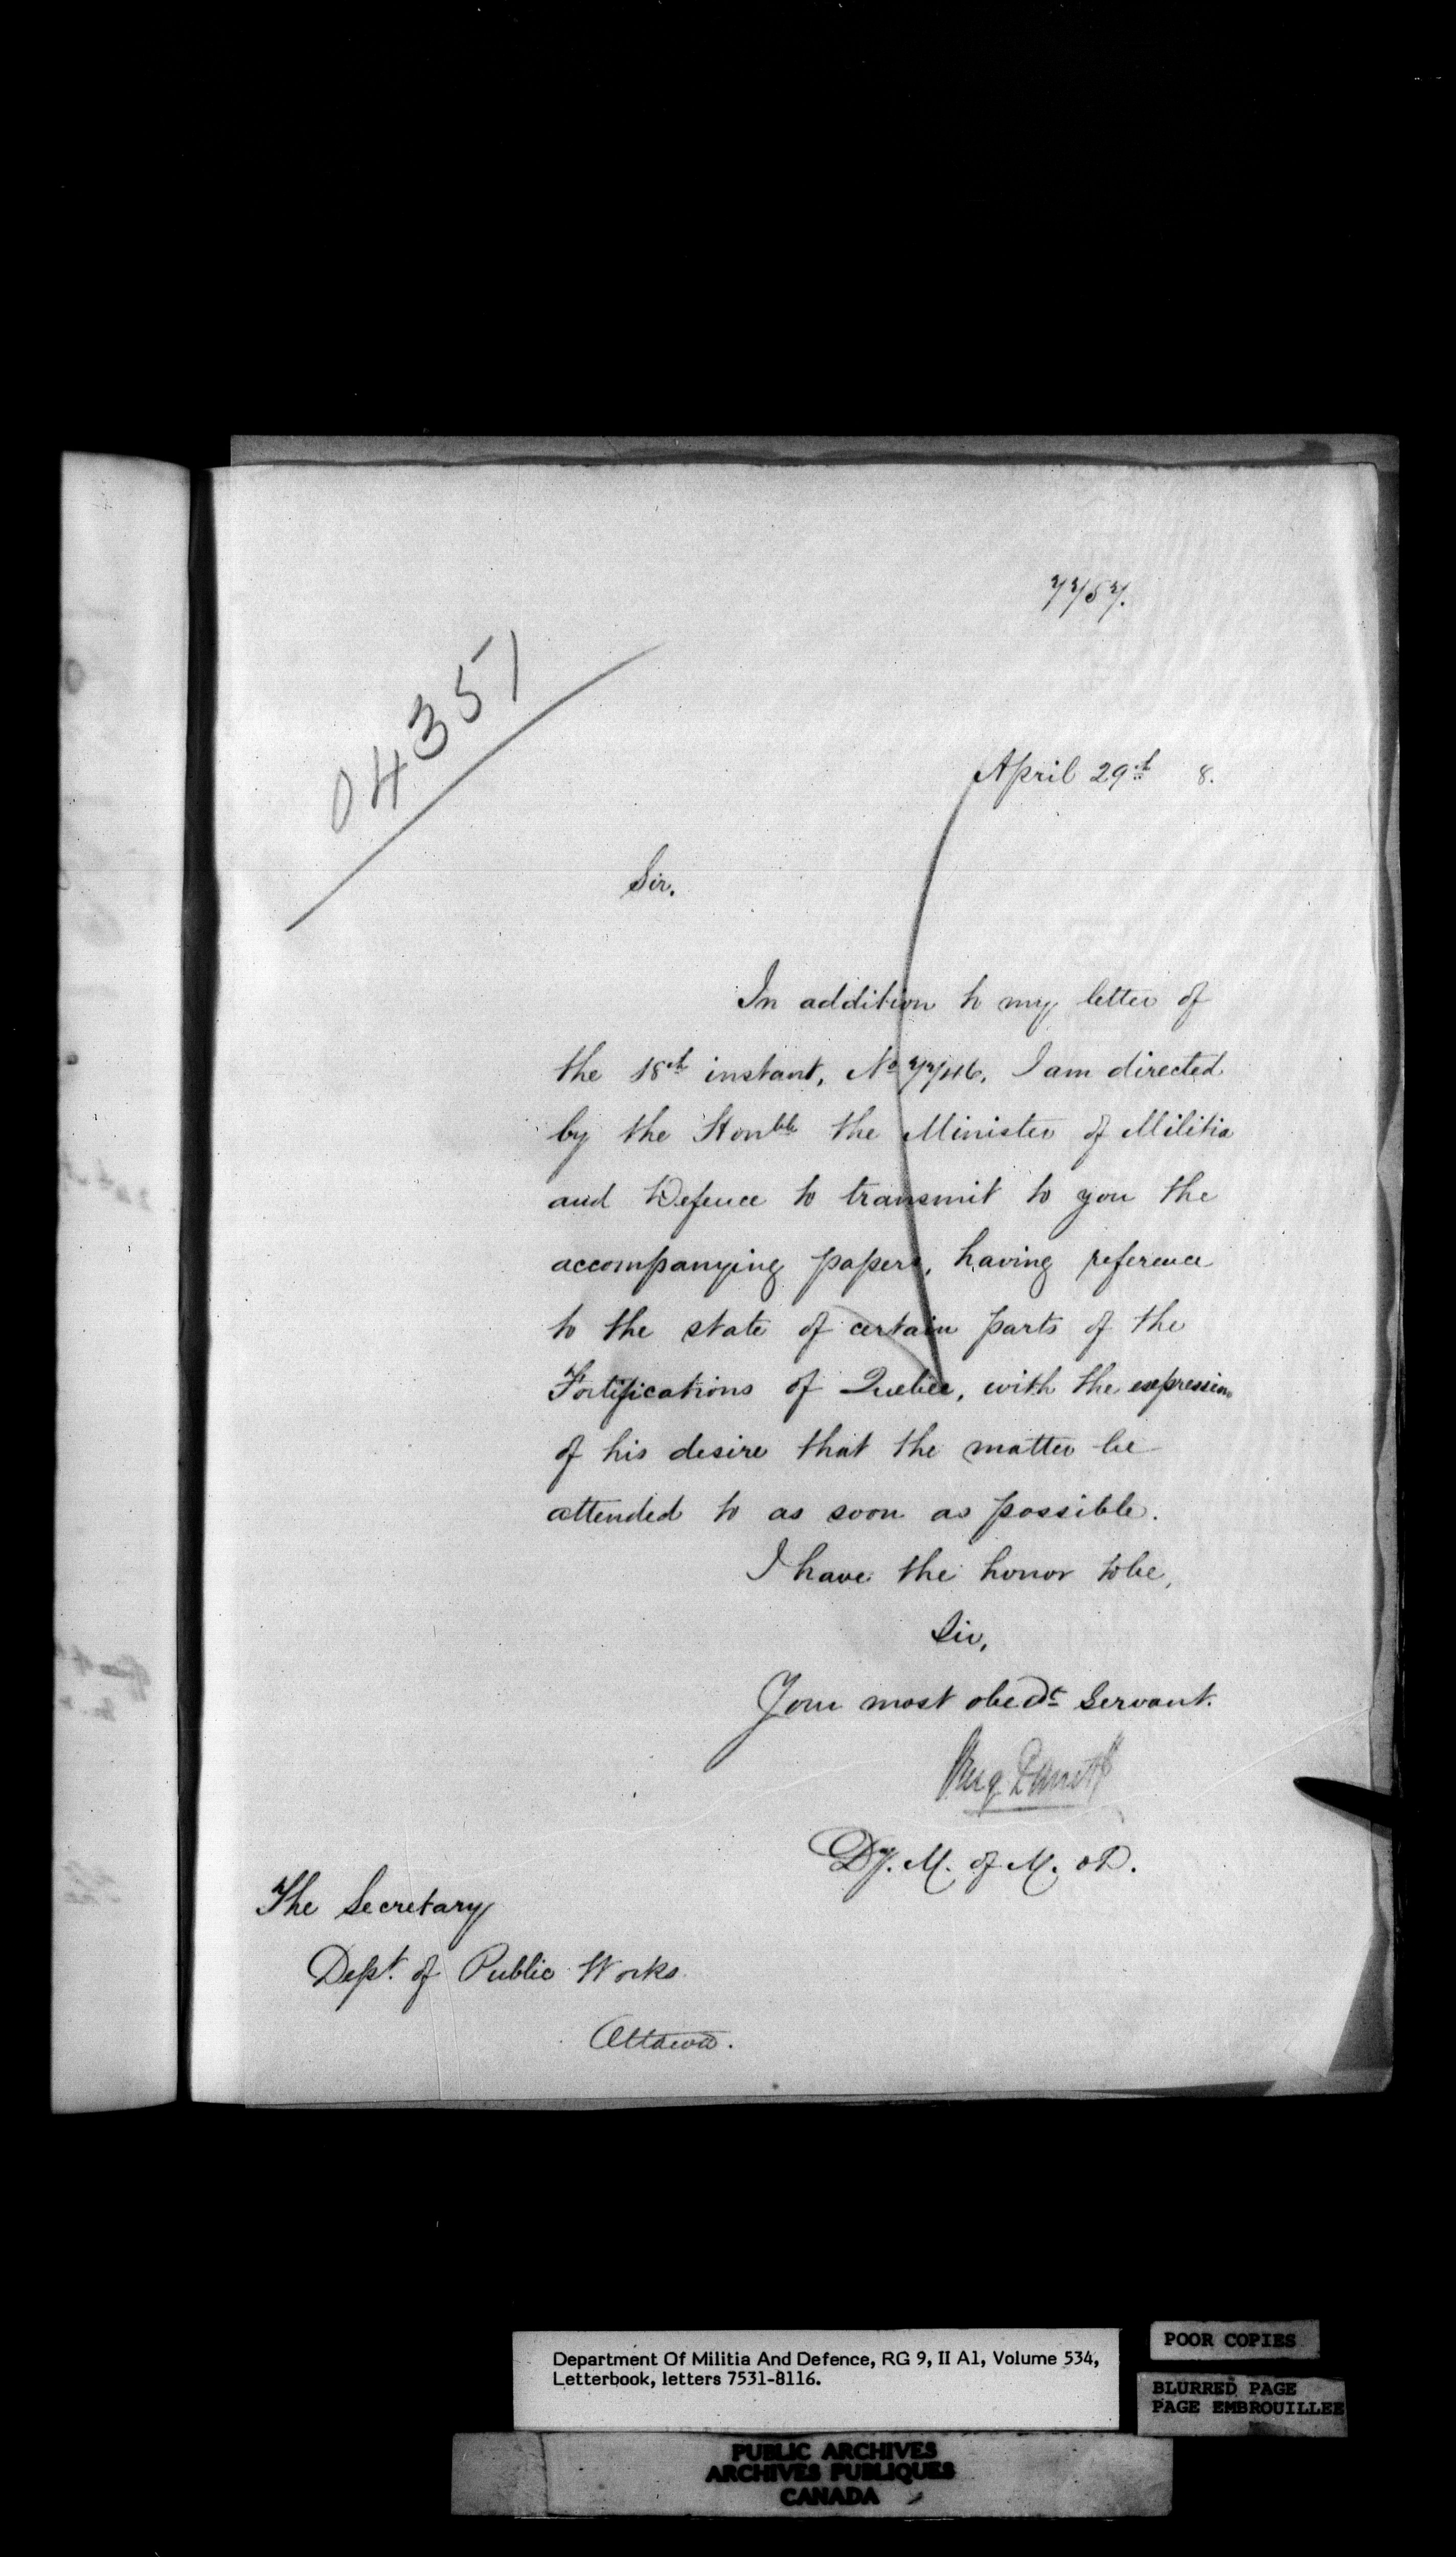 7757.
04351
April 29th 8.
Sir.
In addition to my letter of
the 18th instant, No 7746, I am directed
by the Honble the Minister of Militia
and Defence to transmit to you the
accompanying papers, having reference
to the state of certain parts of the
Fortifications of Quebec, with the expression
of his desire that the matter be
attended to as soon as possible.
I have the honor to be,
Sir,
Your most obedt Servant.
Dy. M. of M. & D.
The Secretary
Dept. of Public Works
Ottawa.
Department Of Militia And Defence, RG 9, II A1, Volume 534,
Letterbook, letters 7531-8116.
POOR COPIES
BLURRED PAGE
PAGE EMBROUILLEE
PUBLIC ARCHIVES
ARCHIVES PUBLIQUES
CANADA